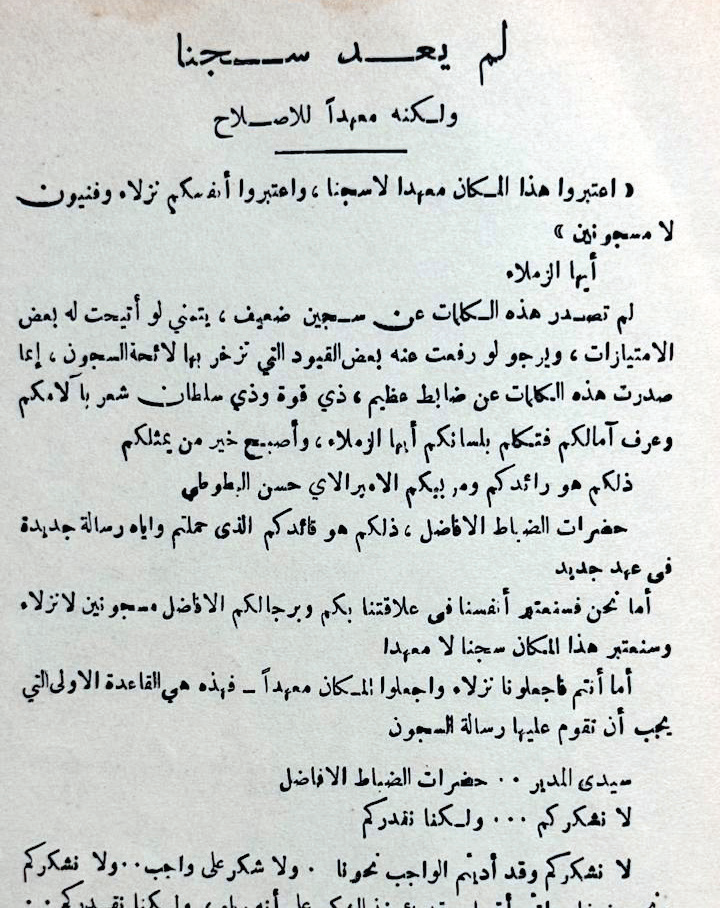 لم يعد سجنا
ولكنه معهداً للاصلاح
« اعتبروا هذا المكان معهدا لاسجنا ، واعتبروا أنفسكم نزلاء وفنيون
لا مسجونين »
أيها الزملاء
لم تصدر هذه الكلمات عن سجين ضعيف ، يتمني لو أتيحت له بعض
الامتيازات ، ويرجو لو رفعت عنه بعض القيود التي تزخر بها لائحة السجون ، إنما
صدرت هذه الكلمات عن ضابط عظيم ، ذي قوة وذي سلطان شعر بآلامكم
وعرف آمالكم فتكلم بلسانكم أيها الزملاء ، وأصبح خير من يمثلكم
ذلكم هو رائدكم ومربيكم الاميرالاي حسن البطوطي
حضرات الضباط الافاضل ، ذلكم هو قائدكم الذى حملتم واياه رسالة جديدة
فى عهد جديد
أما نحن فسنعتبر أنفسنا فى علاقتنا بكم وبرجالكم الافاضل مسجونين لانزلاء
وسنعتبر هذا المكان سجنا لا معهدا
أما أنتم فاجعلونا نزلاء واجعلوا المكان معهداً – فهذه هي القاعدة الاولى التي
يجب أن تقوم عليها رسالة السجون
سيدى المدير ٠٠ حضرات الضباط الافاضل
لا نشكركم ٠٠٠ ولكنا نقدركم
لا نشكركم وقد أديتم الواجب نحونا ٠ ولا شكر على واجب ٠٠ ولا نشكركم
ولكنا نقدركم ٠٠